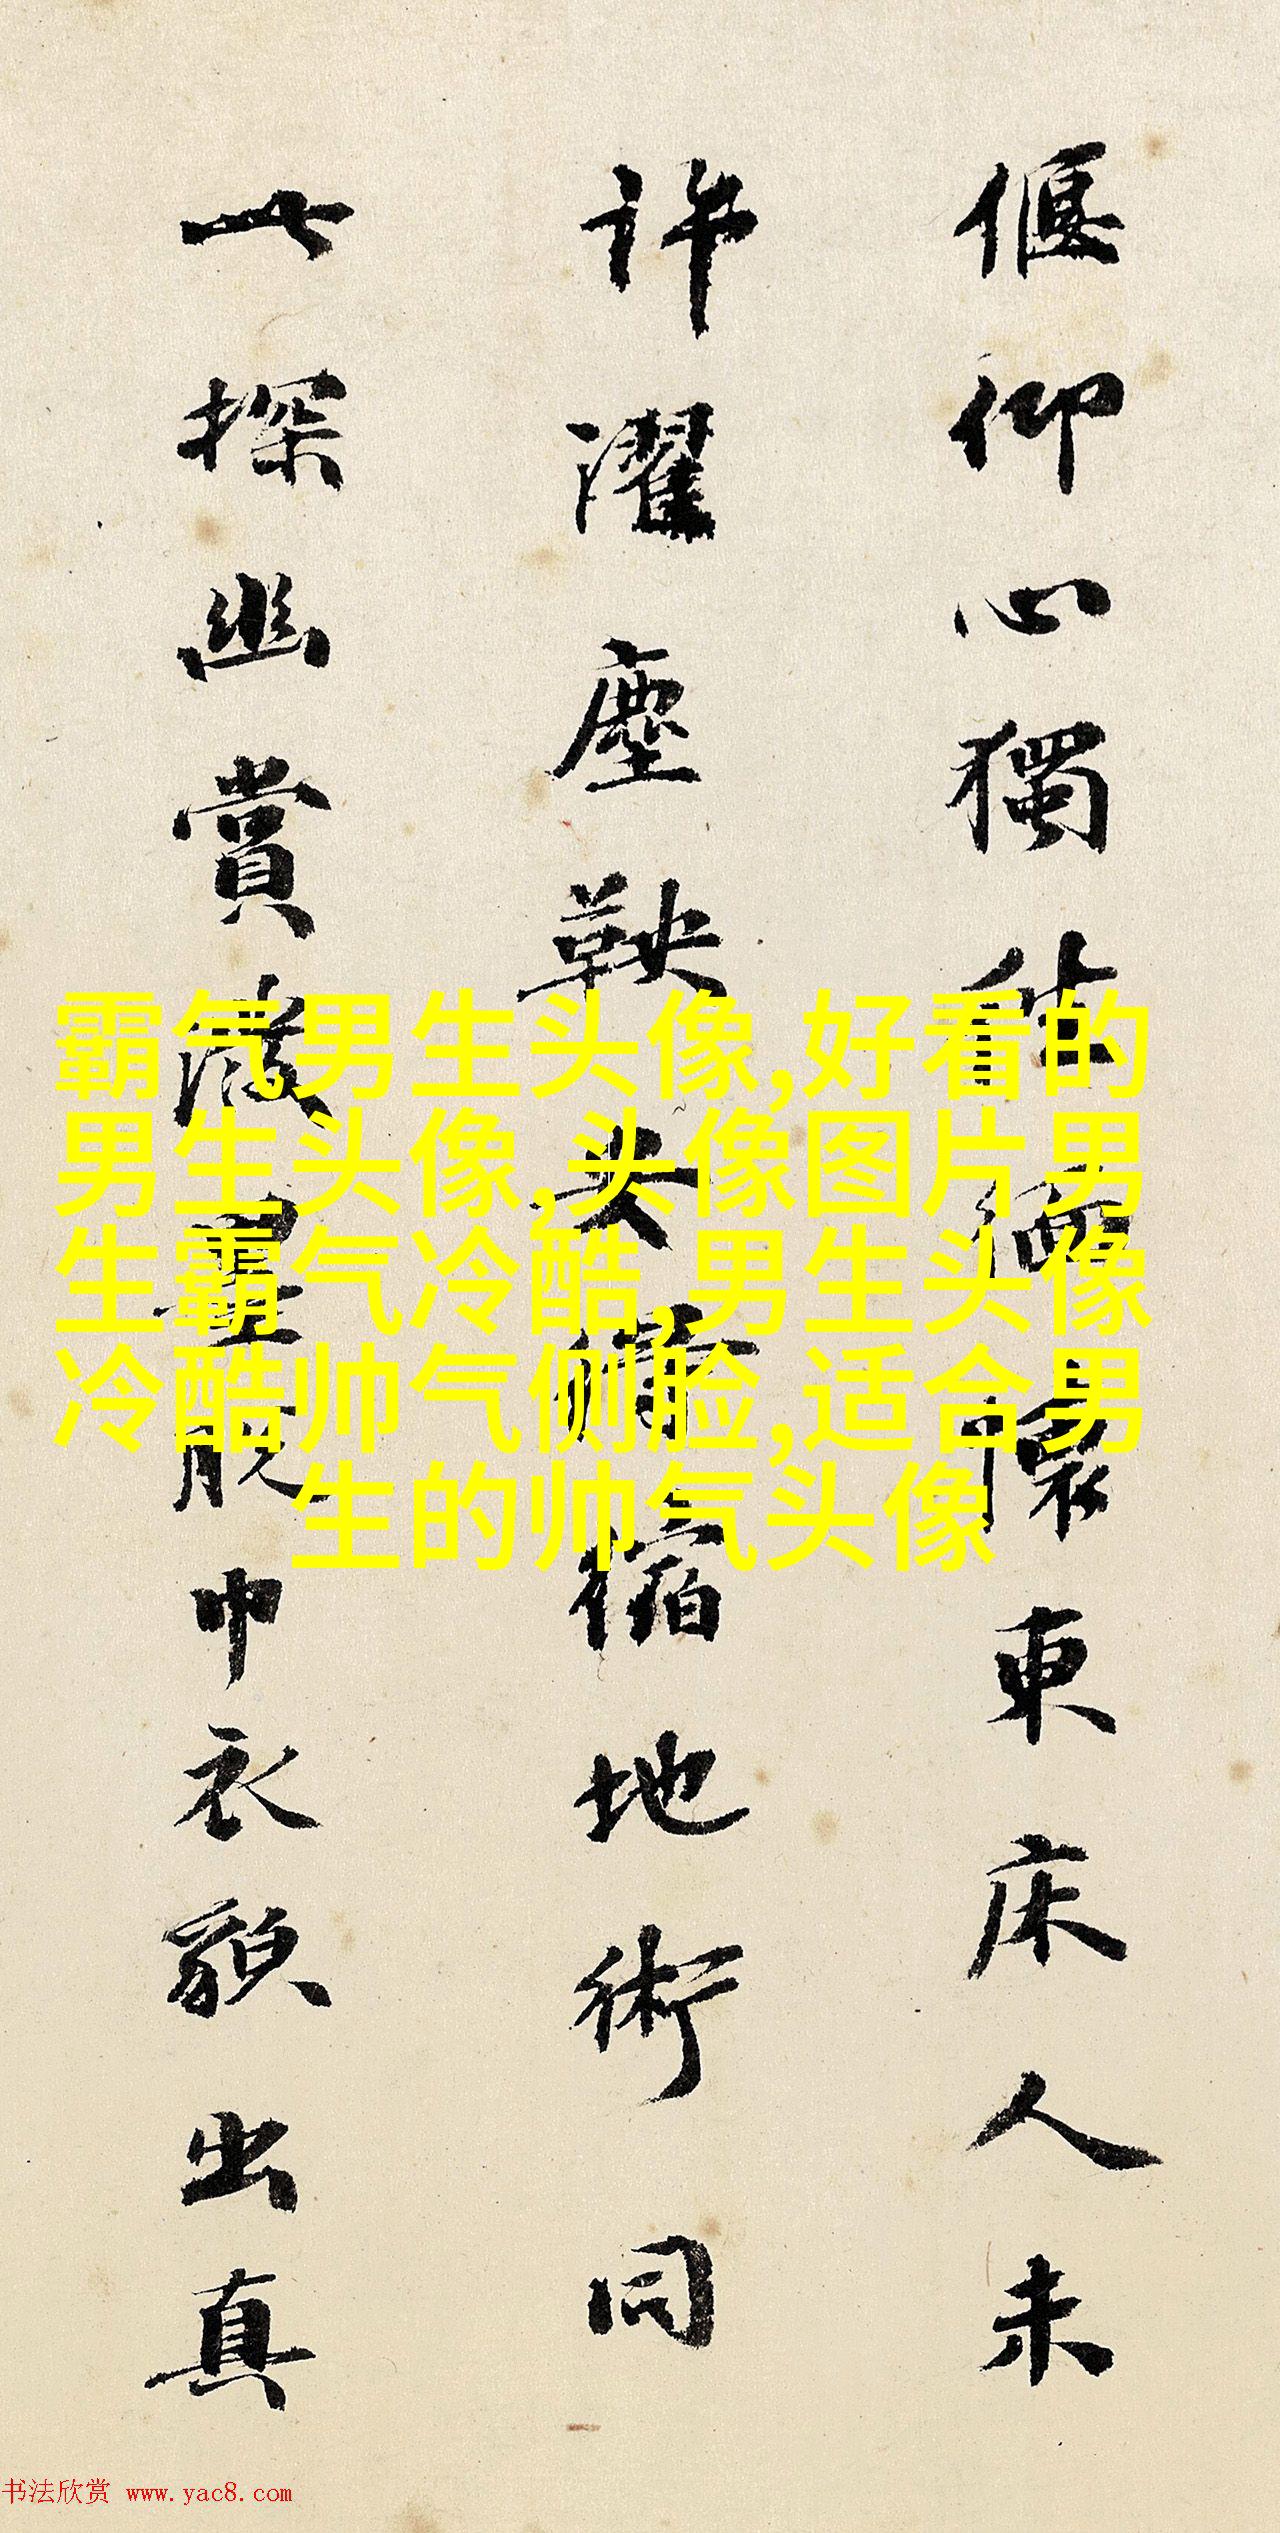 偃仰心獨往懷東床人未
許濯塵鞅安縮地術同
此探幽賞靈脫巾衣貌出真
霸气男生头像,好看的
男生头像,头像图片男
生霸气冷酷,男生头像
冷酷帅气侧脸,适合男
生的帅气头像
书法欣赏 www.yac8.com